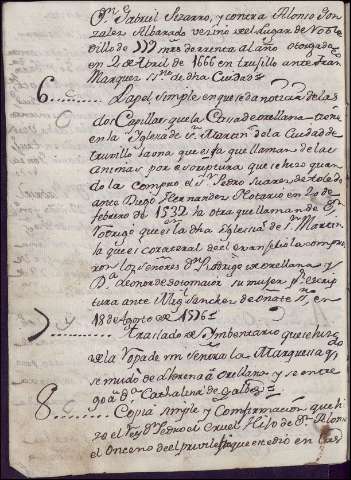 Dn. Gabriel Pizarro, y contra Alonso Gon-
zales Albarado vezino del lugar de Roble-
dillo de mrs de renta al año otorgada
en 2 de Abril de 1666 en trujillo ante
Marquez ssno de dha Ciudad=
6 Papel simple en que se da noticia de las
dos Capillas que la Casa de orellana tiene
en la Yglesia de Sn. Martin de la Ciudad de
truxillo la una que es la que llaman de las
animas por escriptura que se hizo quan-
do la compro el Sr. Pedro Suares de toledo
ante Diego Hernandez Notario en 20 de
febrero de 1532. la otra que llaman de Sn.
Rodrigo que es la dha Yglesia de Sn. Martin
la que es corateral del evangelio la compra-
ron los señores Dn. Rodrigo de orellana y
Da. Leonor de sotomaior su mujer pr. escrip-
tura ante Sanchez de Oñate ssno. en
18 de Agosto de 1576=
7 Traslado de Ymbentario que se hizo
de la Ropa de mi Señora la Marquesa q.
se mudó de Llerena á Orellana y se entre-
gó a Da. Cathalina de Valdez=
8 Copia simple y Comfirmación que hi-
zo el rey Dn. Pedro el Cruel Hijo de Dn. Alon-
el Onceno de el privilegio que se dio en las